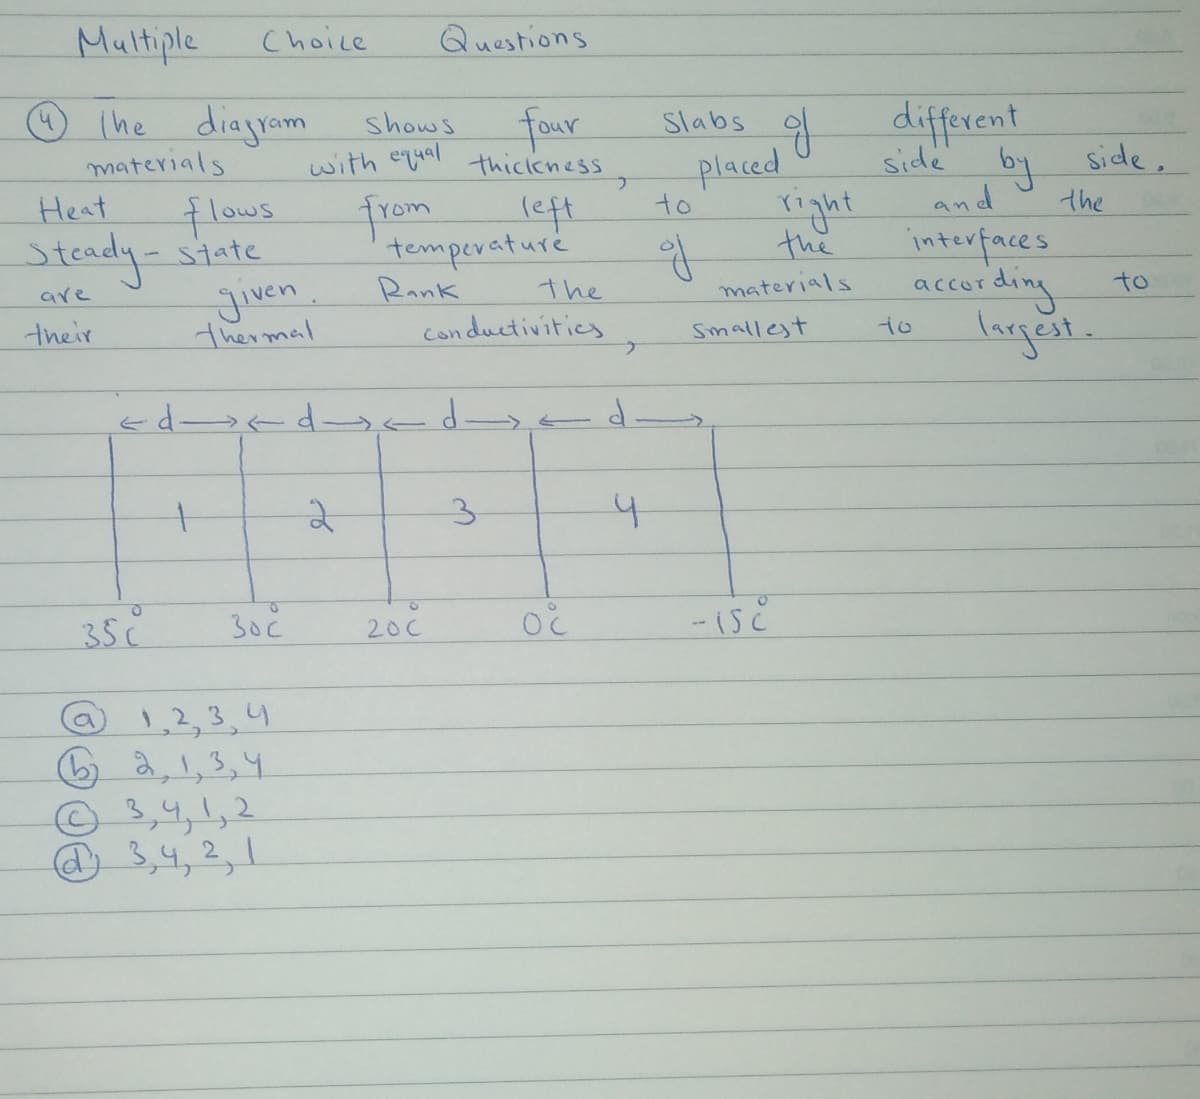 Multiple Choice Questions
④ The diagram shows four slabs of different
materials with equal thickness, placed side by side.
Heat flows from left to right and the
Steady-state temperature of the interfaces
are given. Rank the materials according to
their thermal conductivities, smallest to largest.
←d→←d→←d→←d→
1 2 3 4
35°C 30°C 20°C 0°C -15°C
ⓐ 1,2,3,4
ⓑ 2,1,3,4
ⓒ 3,4,1,2
ⓓ 3,4,2,1